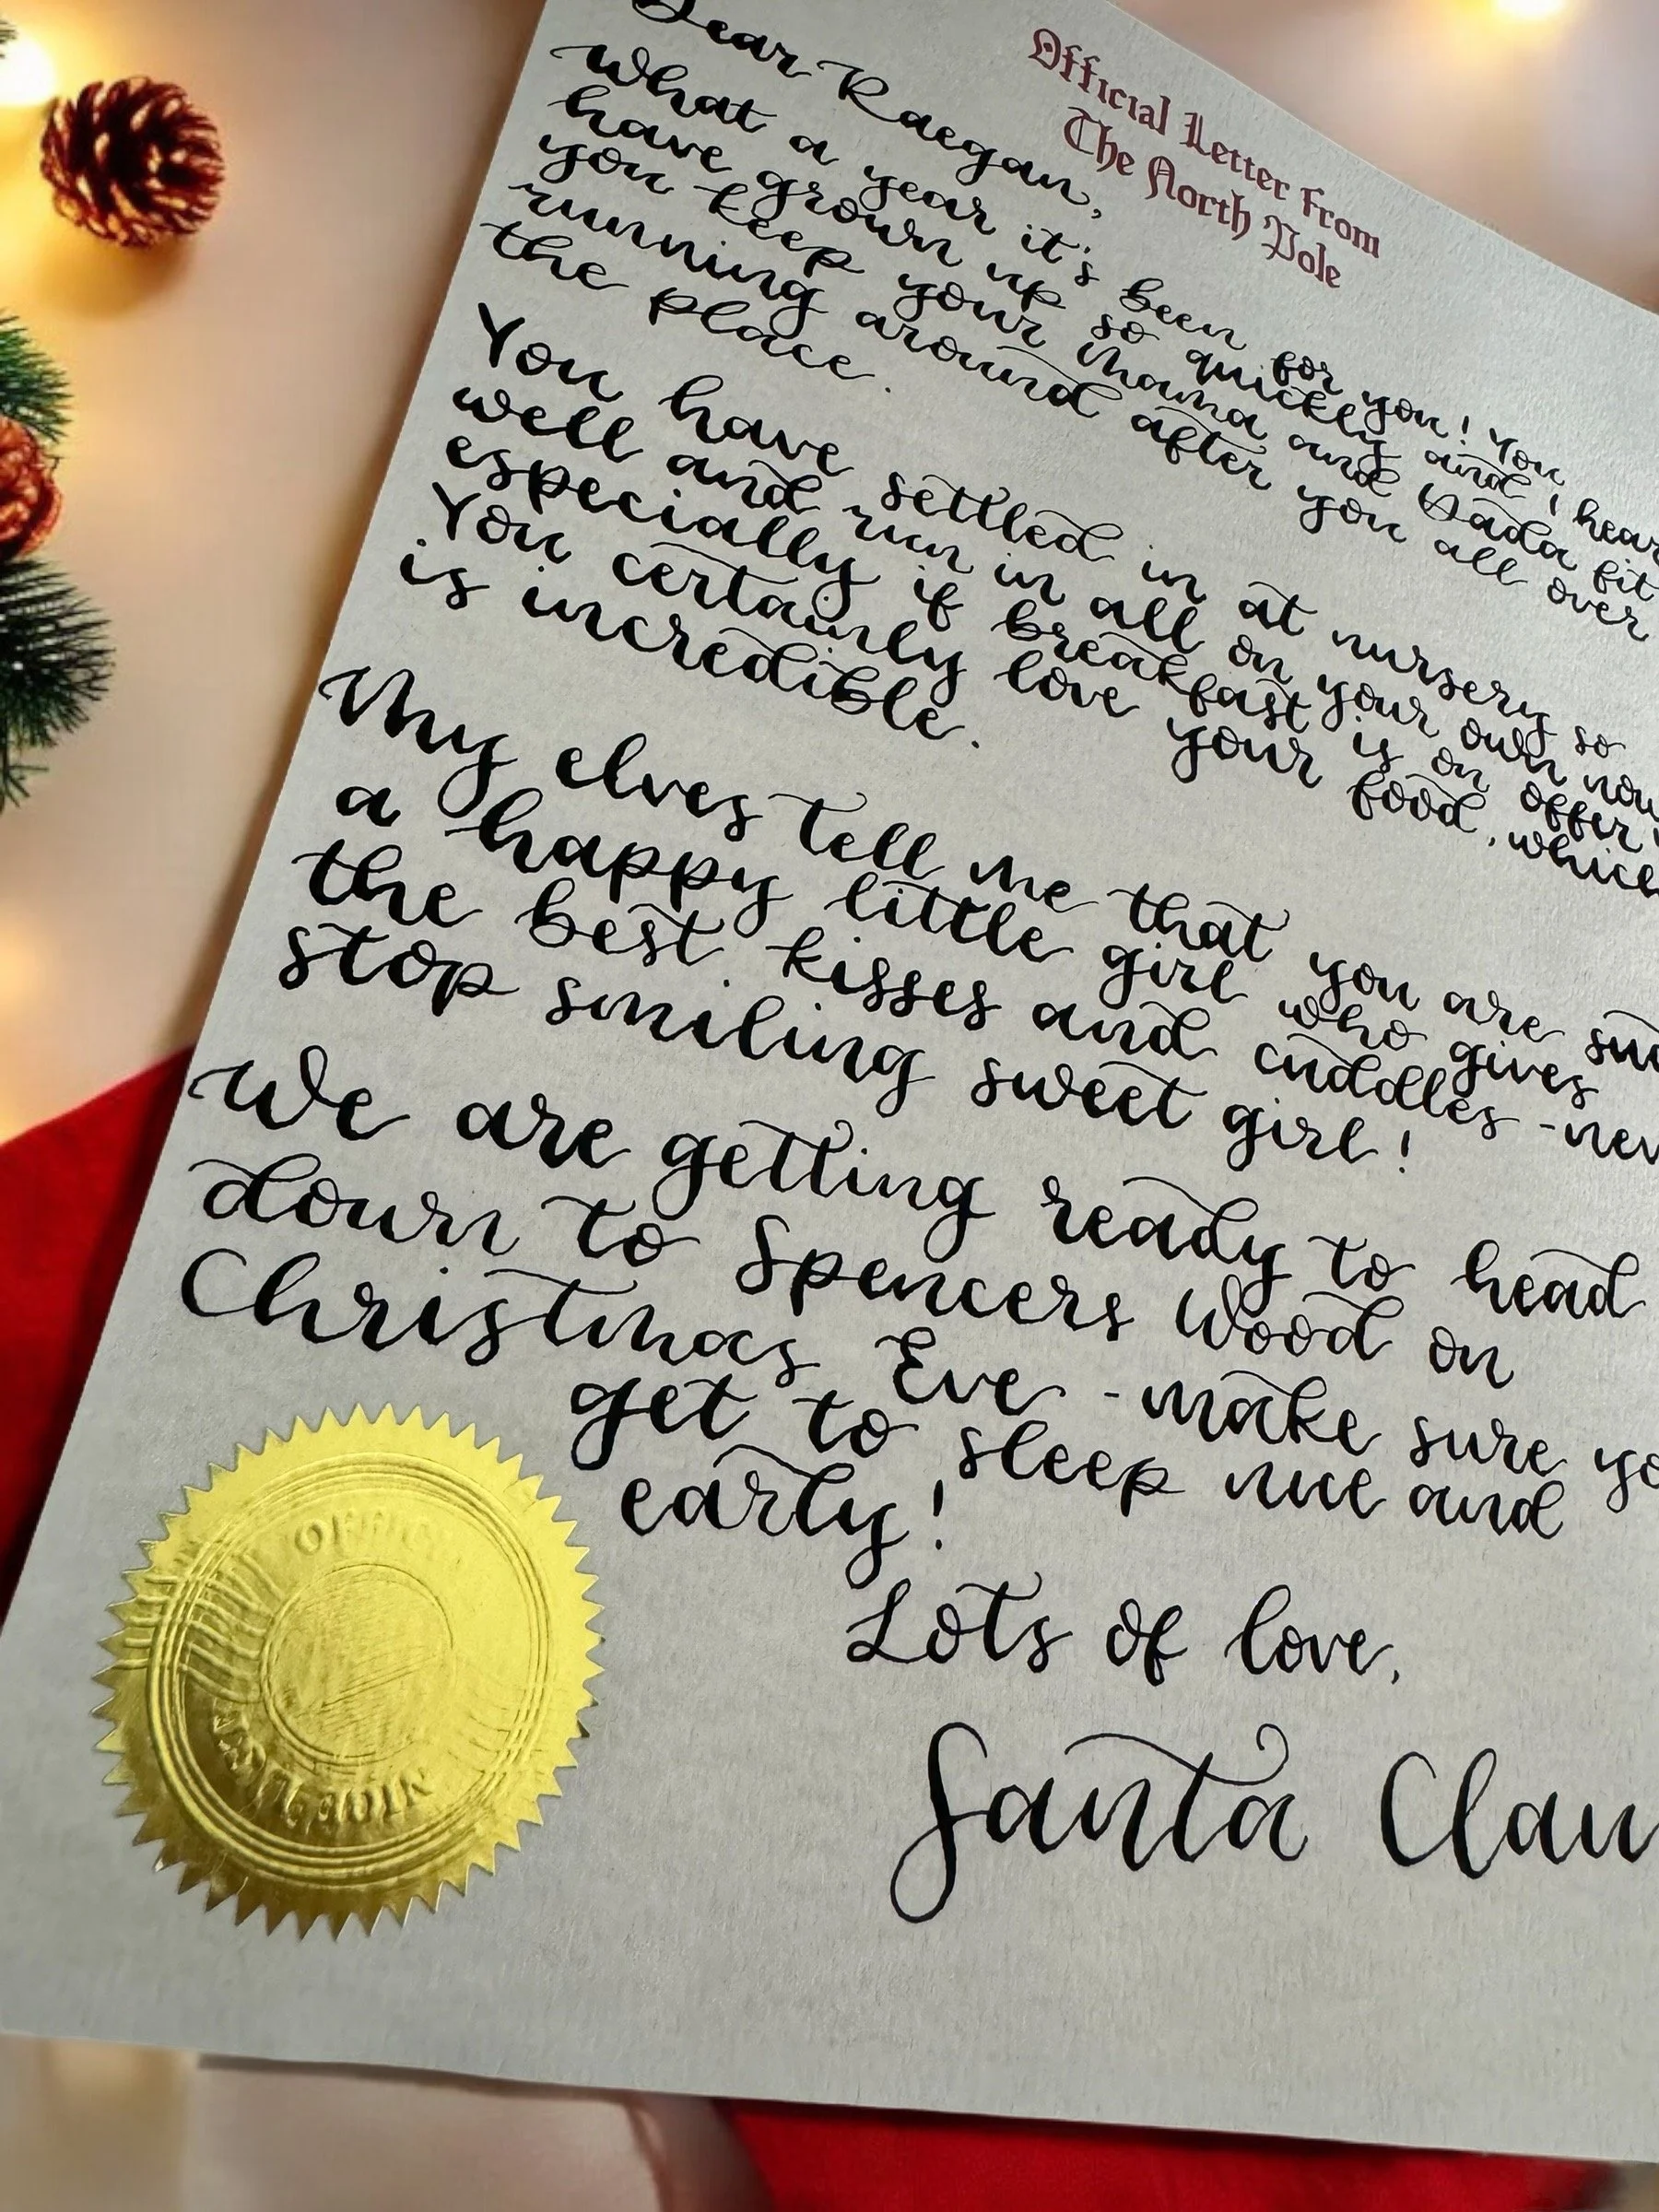 Official Letter From
The North Pole
Dear Raegan,
What a year it's been for you! You
have grown up so quickly and I hear
you keep your Mama and Dada fit
running around after you all over
the place.
You have settled in at nursery so
well and run in all on your own now
especially if breakfast is on offer!
You certainly love your food, which
is incredible.
My elves tell me that you are
a happy little girl who gives
the best kisses and cuddles -
stop smiling sweet girl!
We are getting ready to head
down to Spencers Wood on
Christmas Eve - make sure
get to sleep nice and
early!
Lots of love,
Santa Clau
OFFICIAL
NICE LIST